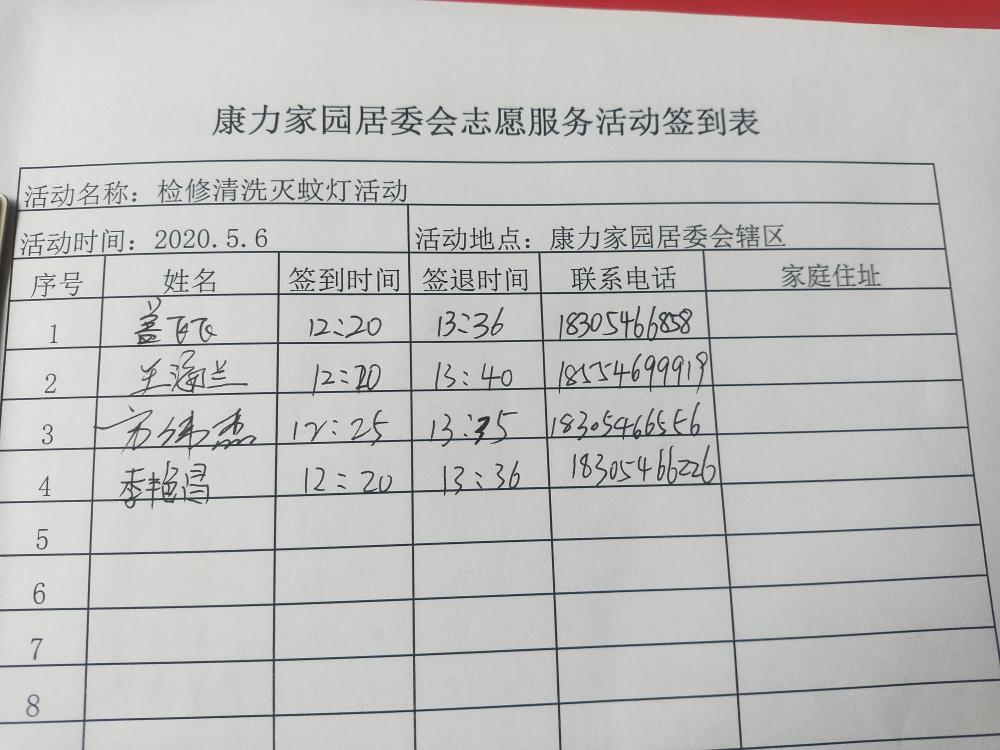 康力家园居委会志愿服务活动签到表
活动名称：检修清洗灭蚊灯活动
活动时间：2020.5.6 活动地点：康力家园居委会辖区
序号 姓名 签到时间 签退时间 联系电话 家庭住址
1 盖飞飞 12:20 13:36 18305466858
2 王海兰 12:20 13:40 18554699919
3 方伟杰 12:25 13:35 18305466556
4 李艳 12:20 13:36 18305466226
5
6
7
8